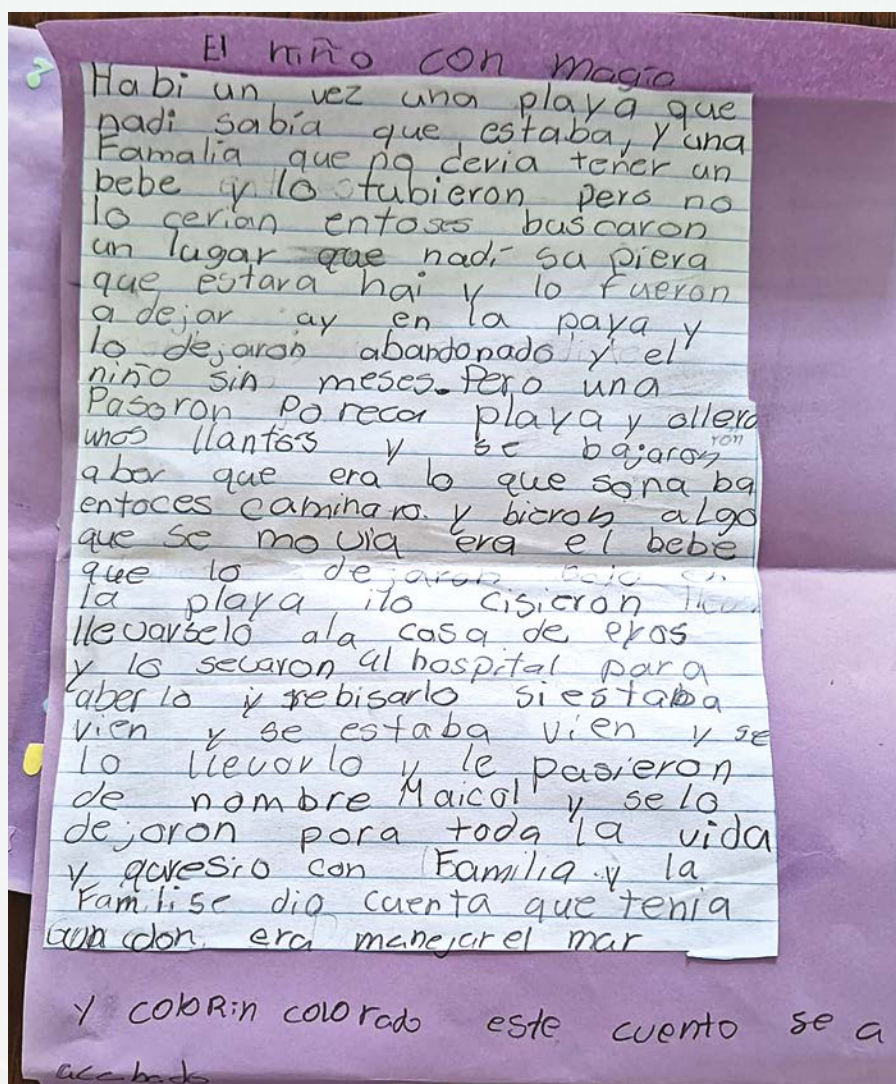 El niño con magia
Habi un vez una playa que
nadi sabía que estaba, y una
Famalia que no devia tener un
bebe y lo tubieron pero no
lo qerian entoses buscaron
un lugar que nadi su piera
que estara hai y lo fueron
a dejar ay en la paya y
lo dejaron abandonado y el
niño sin meses. Pero una
Pasoron Po reca playa y ollero
unos llantos y se bajaron
ron
abor que era lo que sona ba
entoces caminaro y bieron algo
que se movia era el bebe
que lo dejaron
la playa ilo cisieron
llevarselo ala casa de eyos
y lo secaron al hospital para
aberlo y rebisarlo si estaba
vien y se estaba vien y se
lo llevarlo y le pasieron
de nombre Maicol y selo
dejaron para toda la vida
y qaresio con Familia y la
Famili se dio cuenta que tenia
un don era manejar el mar
y coloRin colorado este cuento se a
acabado